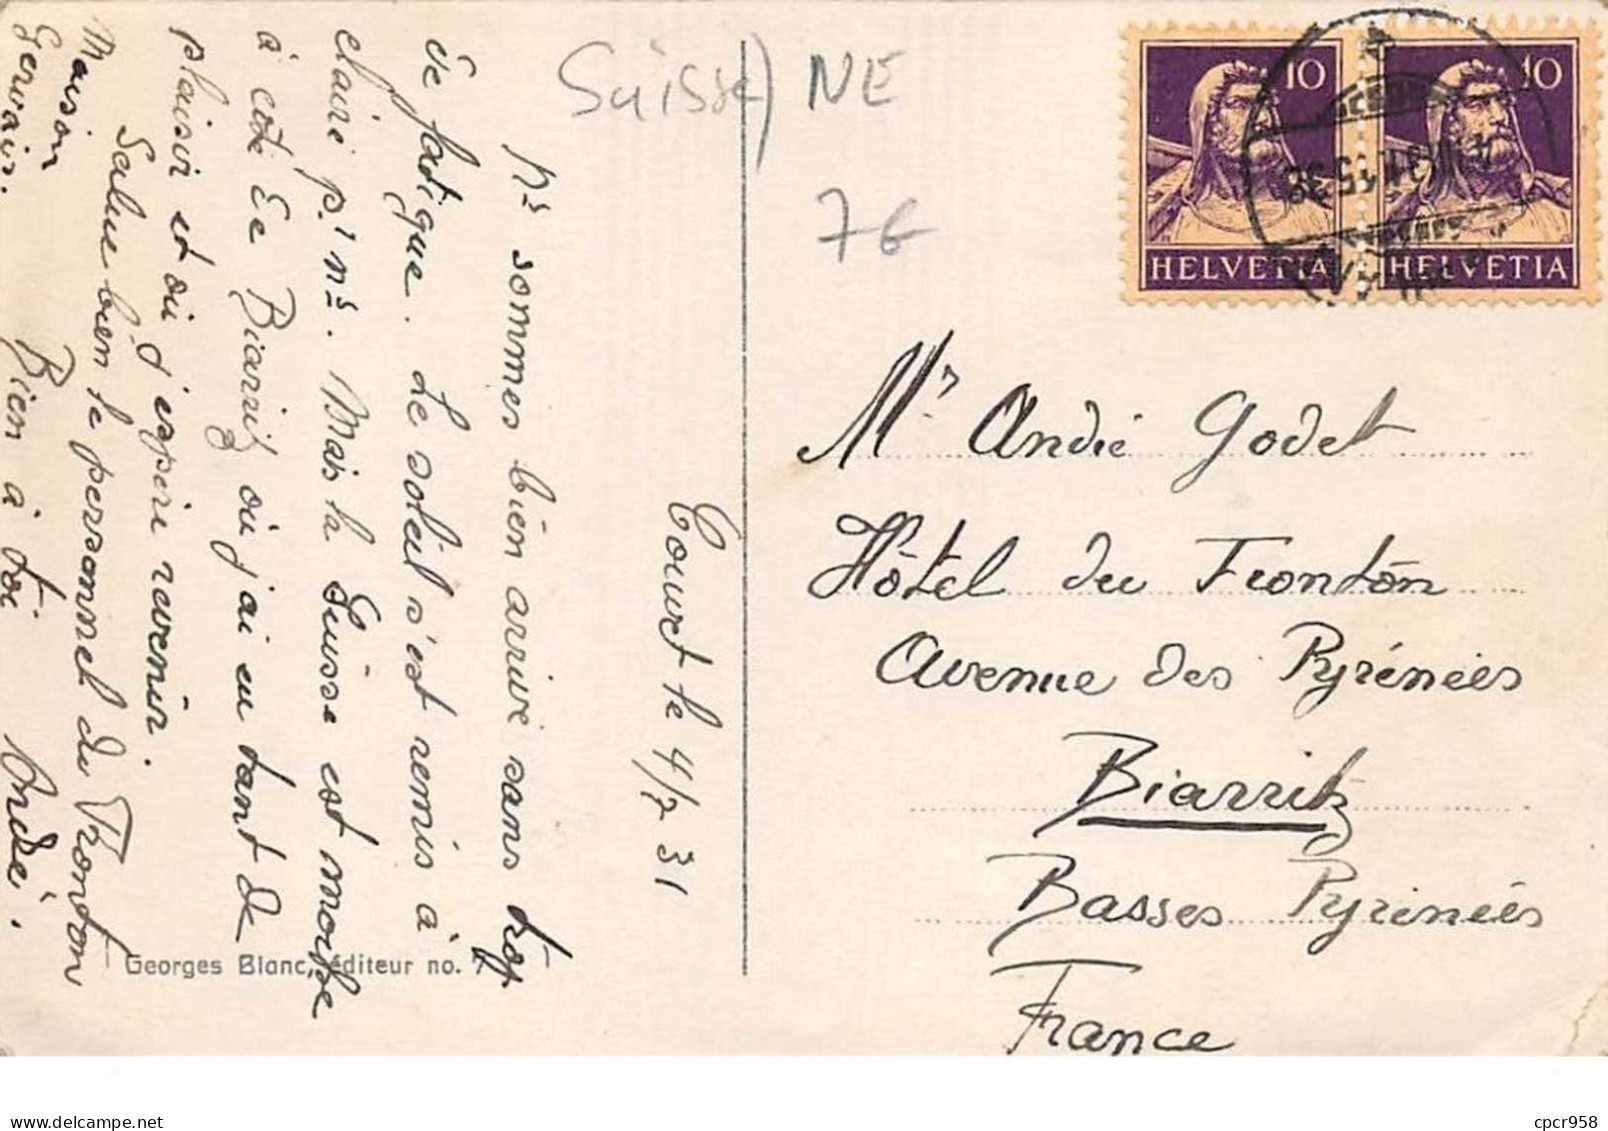 Suisse) NE
7€
10 10
HELVETIA HELVETIA
Court le 4/7 31
Ns sommes bien arrivé sans trop
de fatigue. Le soleil s'est remis à
clairé p. ns. Mais la Suisse est moche
à côté de Biarritz où j'ai eu tant de
plaisir et où j'espère revenir.
Salue bien le personnel du Fronton
Maison
Gervair.
Bien à toi
André.
Georges Blanc, éditeur no. 7
Mr André Godet
Hôtel du Frontôn
Avenue des Pyrénées
Biarritz
Basses Pyrénées
France
cpcr958